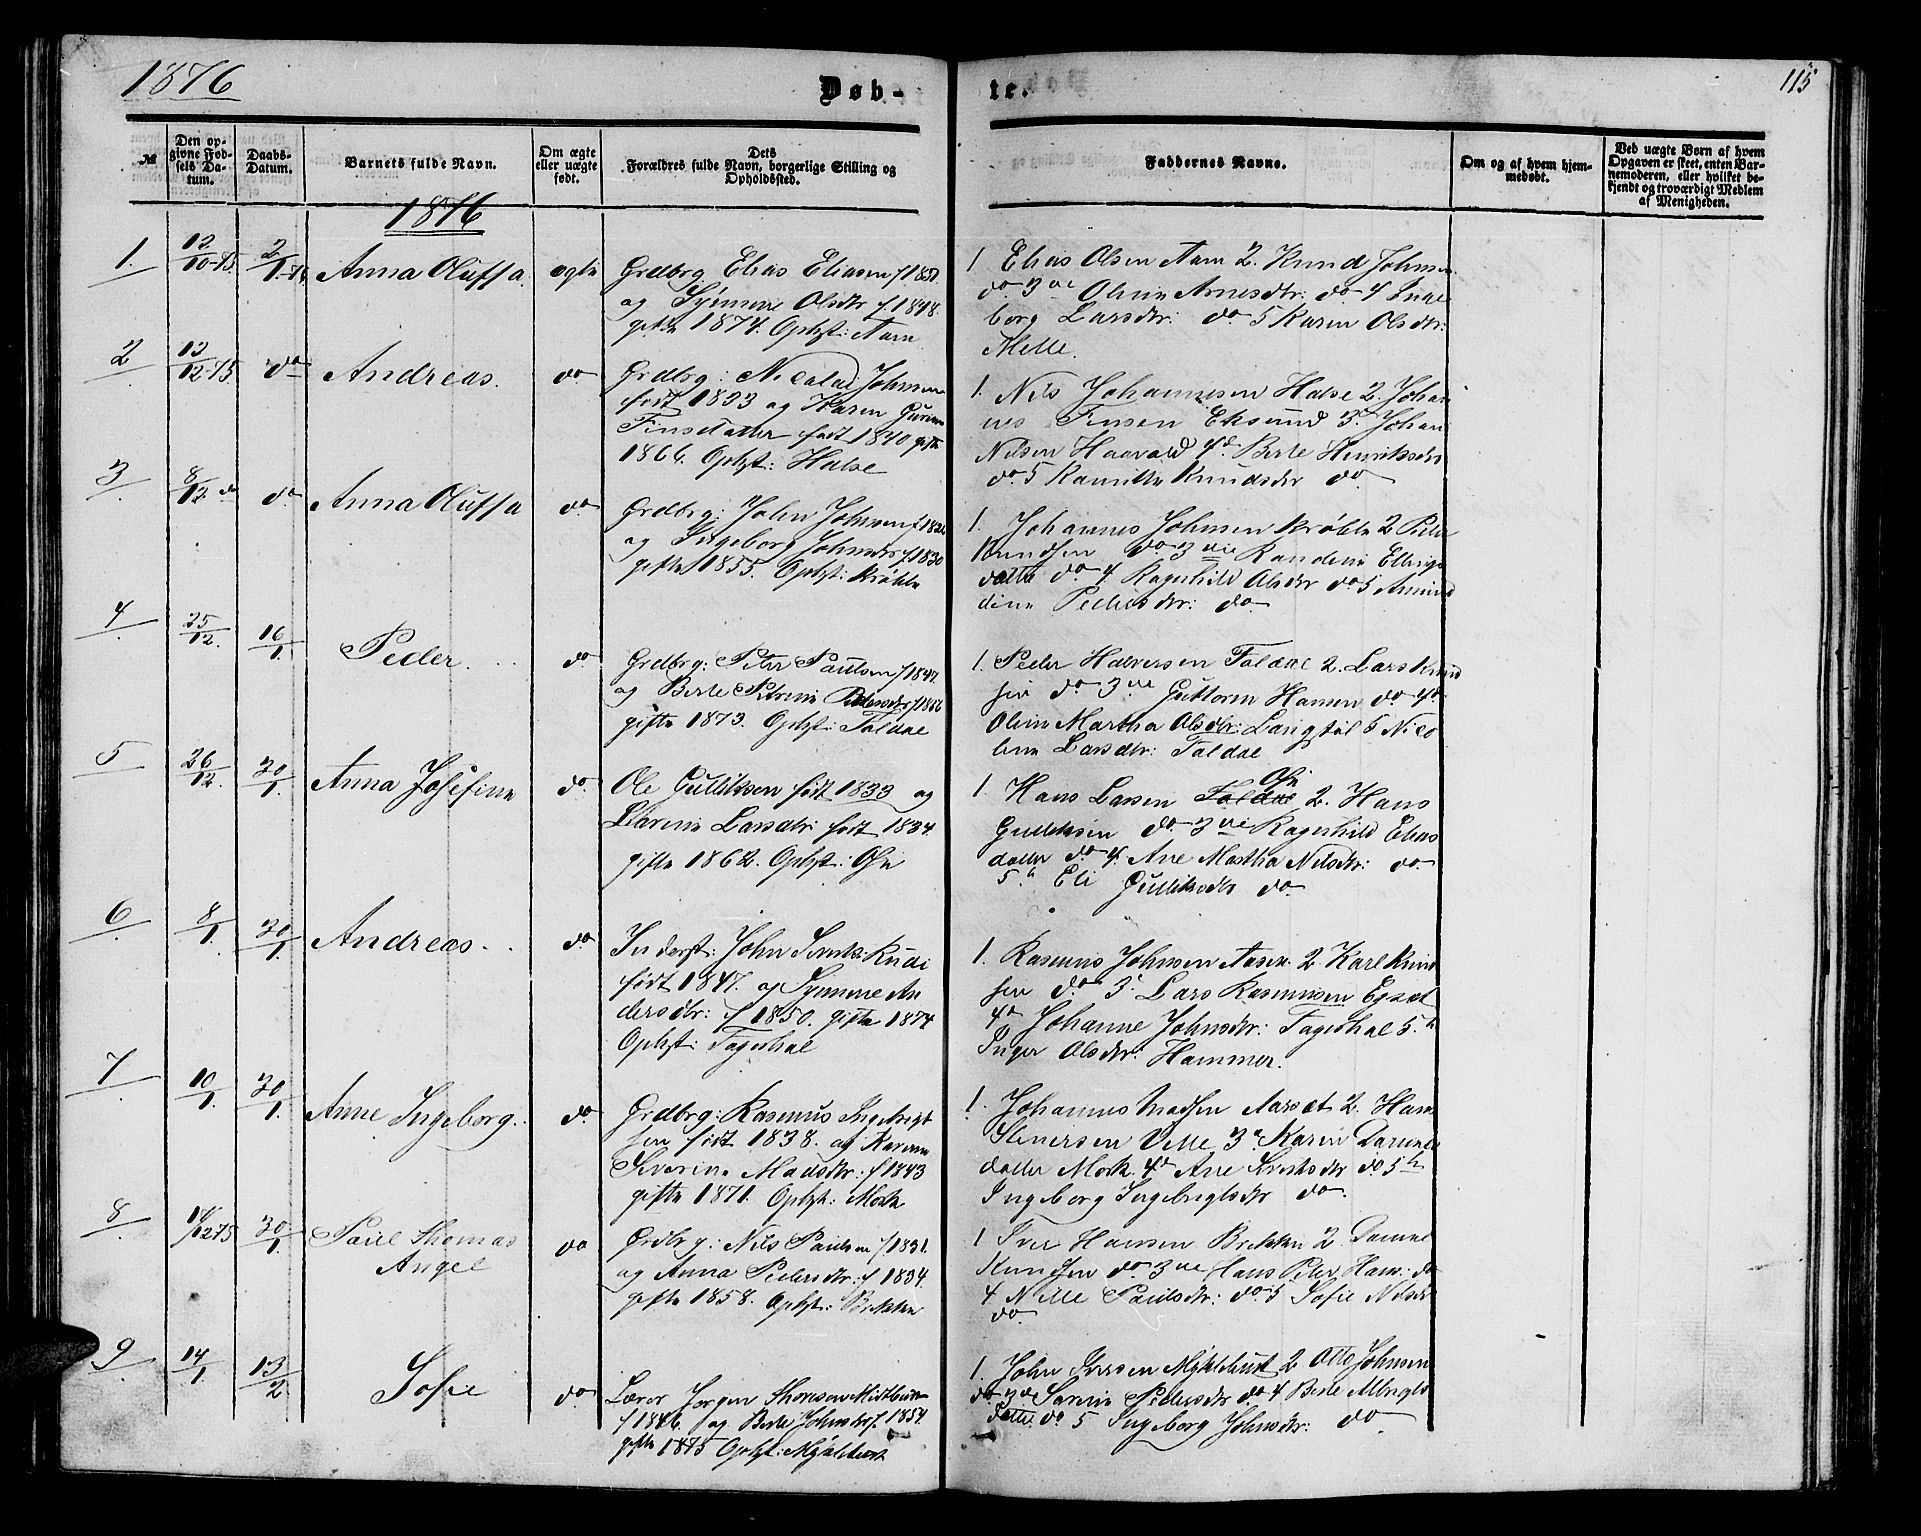 1876
Døb-
te.
115
№
Den op-
givne Fød-
sels Da-
tum.
Daabs-
Datum.
Barnets fulde Navn.
Om ægte
eller uægte
født.
Dets
Forældres fulde Navn, borgerlige Stilling og
Opholdssted.
Faddernes Navne.
Om og af hvem hjem-
medøbt.
Ved uægte Børn af hvem
Opgaven er skeet, enten Bar-
nemoderen, eller hvilket be-
kjendt og troværdigt Medlem
af Menigheden.
1876
1.
12/10-75
2/1-76
Anna Oluffa.
ægte
Grdbrg Elias Eliasen f 1851.
og Synneve Olsdtr f. 1848.
gifte 1874. Ophst: Aam
1 Elias Olsen Aam 2. Knud Johnsen
do 3ve Olvine Arnesdtr: do 4 Inge
borg Larsdtr: do 5 Karen Olsdtr:
Melle.
2
13/12-75
do
Andreas.
do
Grdbrg: Nicolai Johnsen
født 1833 og Karen
Finsdatter født 1840 gifte
1866. Ophst: Halse
1. Nils Johannesen Halse 2. Johan
nes Finsen Eksund 3. Johan
Nilsen Haavald 4d Berte Henriksdtr
do 5 Knudsdtr do
3
8/12 do
do
Anna Oluffa
do
Grdbrg: John Johnsen
og Ingeborg Johnsdtr f. 1830
gifte 1855. Ophst: Krøkle
1. Johannes Johnsen Krøkle 2 Peder
Knudsen do 3ve Randine Ellings
datter do 4 Ragnhild Olsdtr do 5
dine Pedersdtr: do
4
25/12.
16/1.
Peder.
do
Grdbrg: Peter Paulsen f 1847.
og Berte Petrine Pedersdtr
gifte 1873. Ophst: Foldal
1. Peder Halversen Foldal 2. Lars Knud
sen do 3ve Guttorm Hansen do 4d
Oline Martha Olsdtr: 5 Nico
line Larsdtr: Foldal
5
26/12.
30/1.
Anna Josefine
do
Ole Gulliksen født 1833 og
Larine Larsdtr: født 1834.
gifte 1862. Ophst: Øhi
1. Hans Larsen Foldal Øhi 2. Hans
Gulliksen do 3ve Ragnhild Elias
datter do 4. Ane Martha Nilsdtr: do
5. Eli Gulliksdtr do
6
8/1.
30/1
Andreas.
do
Inderst: John
født 1847. og Synneve An
dersdtr: f 1850. gifte 1874
Ophst: Fagerhal
1. Rasmus Johnsen Aasen. 2. Karl Knud
sen do 3. Lars Rasmussen Egset
4d Johanne Johnsdtr: Fagerhal 5.
Inger Olsdtr: Hammer.
7
10/1.
30/1.
Anne Ingeborg.
do
Grdbrg: Rasmus Ingebrigt
sen født 1838. og Karen
Severine Madsdtr: f 1843
gifte 1871. Ophst: Mork
1. Johannes Madsen Aarset 2. Hans
Steinersen Velle 3. Karen Daniels
datter Mork. 4d Ane do 5
Ingeborg Ingebrigtsdtr do.
8
/12 75
30/1.
Paul Thomas
Angel
do
Grdbrg: Nils Paulsen f 1831.
og Anna Pedersdtr: f 1834.
gifte 1858. Ophst: Brekke
1 Iver Hansen Brekke 2. Daniel
Knudsen do 3ve Hans Peter Hans: do
4 Nille Paulsdtr: do 5 Sofie Nilsdtr
do
9
14/1
13/2
Sofie
do
Lærer Jørgen Thomsen
f 1846. og Berte Johnsdtr f. 1854.
gifte 1875 Ophst: Myklebust
1. John Iversen Myklebust 2 Otto Johnsen
do 3ve Sarine Pedersdtr do 4 Berte Albrigts
datter do 5 Ingeborg Johnsdtr: do